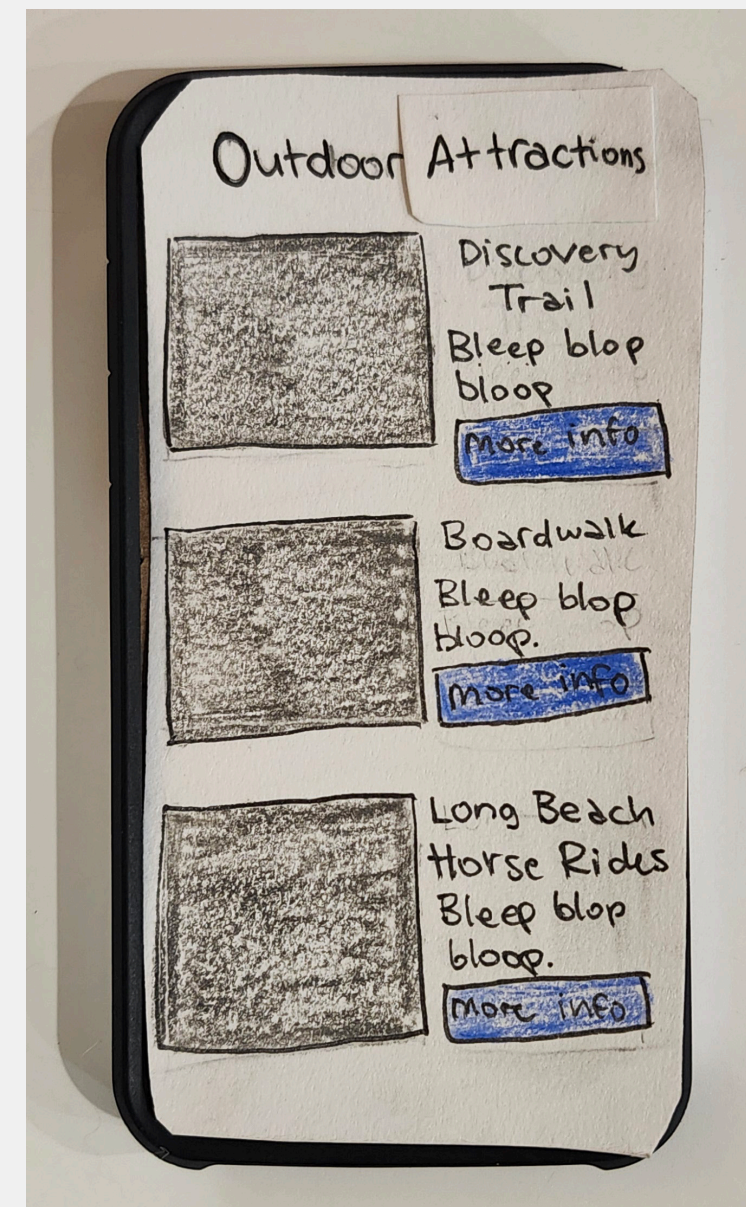 Outdoor Attractions
Discovery
Trail
Bleep blop
bloop
More info
Boardwalk
Bleep blop
bloop.
More info
Long Beach
Horse Rides
Bleep blop
bloop.
More info